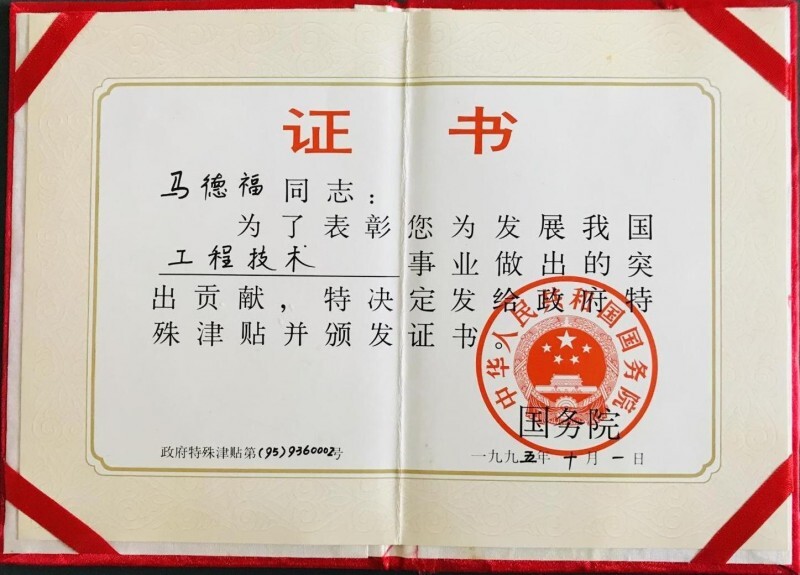 证书
马德福同志：
为了表彰您为发展我国
工程技术事业做出的突
出贡献，特决定发给政府特
殊津贴并颁发证书。
中华人民共和国国务院
国务院
政府特殊津贴第(95)9360002号
一九九五年十月一日